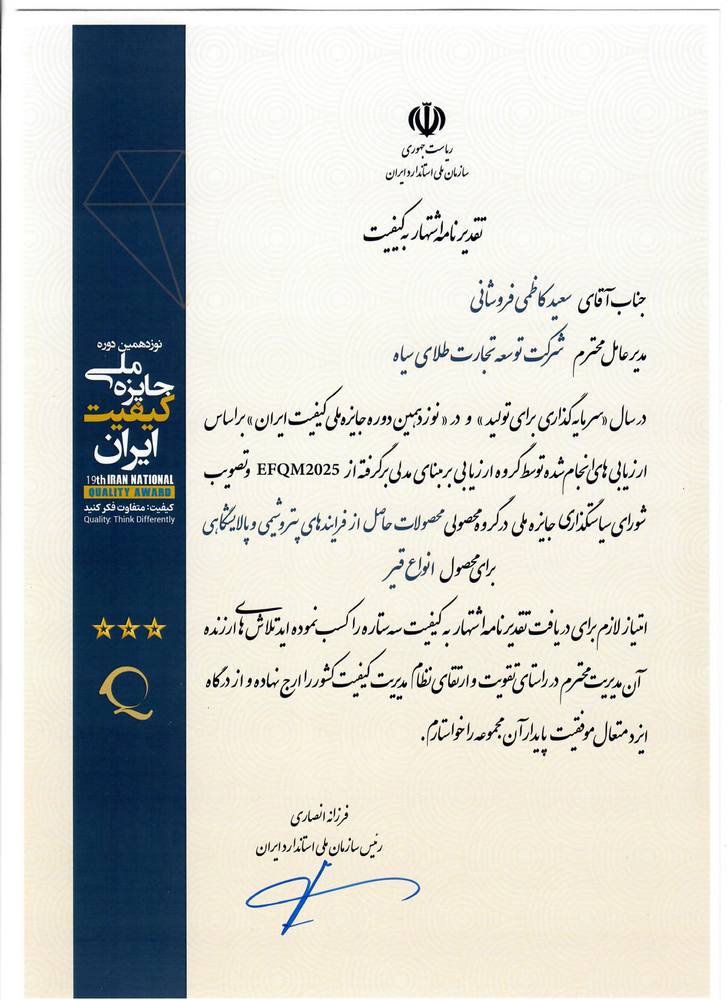 ریاست جمهوری
سازمان ملی استاندارد ایران
تقدیرنامه اشتهار به کیفیت
جناب آقای سعید کاظمی فروشانی
مدیر عامل محترم شرکت توسعه تجارت طلای سیاه
در سال «سرمایه گذاری برای تولید» و در «نوزدهمین دوره جایزه ملی کیفیت ایران» بر اساس
ارزیابی های انجام شده توسط گروه ارزیابی بر مبنای مدلی برگرفته از EFQM2025 و تصویب
شورای سیاستگذاری جایزه ملی در گروه محصولی محصولات حاصل از فرایندهای پتروشیمی و پالایشگاهی
برای محصول انواع قیر
امتیاز لازم برای دریافت تقدیرنامه اشتهار به کیفیت سه ستاره را کسب نموده اید تلاش های ارزنده
آن مدیریت محترم در راستای تقویت و ارتقای نظام مدیریت کیفیت کشور را ارج نهاده و از درگاه
ایزد متعال موفقیت پایدار آن مجموعه را خواستارم.
فرزانه انصاری
رئیس سازمان ملی استاندارد ایران
نوزدهمین دوره
جایزه ملی
کیفیت
ایران
19th IRAN NATIONAL
QUALITY AWARD
کیفیت: متفاوت فکر کنید
Quality: Think Differently